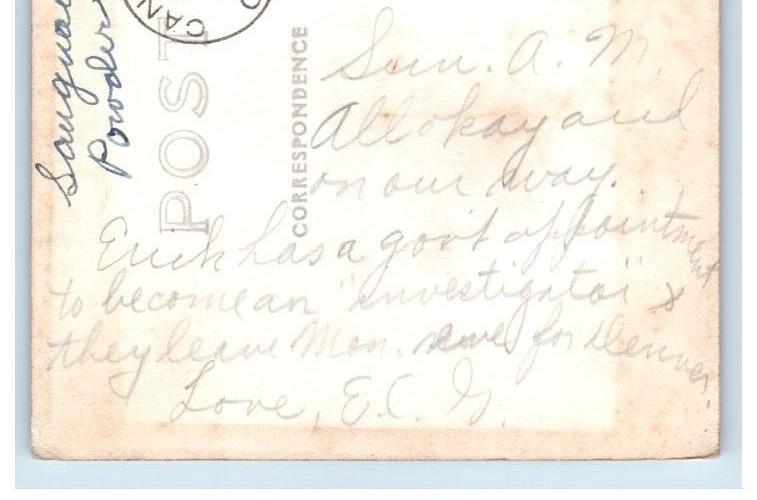 Sun. A. M.
All okay and
on our way.
Erick has a gov't appointment
to become an "investigator" &
they leave Mon. eve for Denver.
Love, E. C. G.
POST
CORRESPONDENCE
CAN
Powder